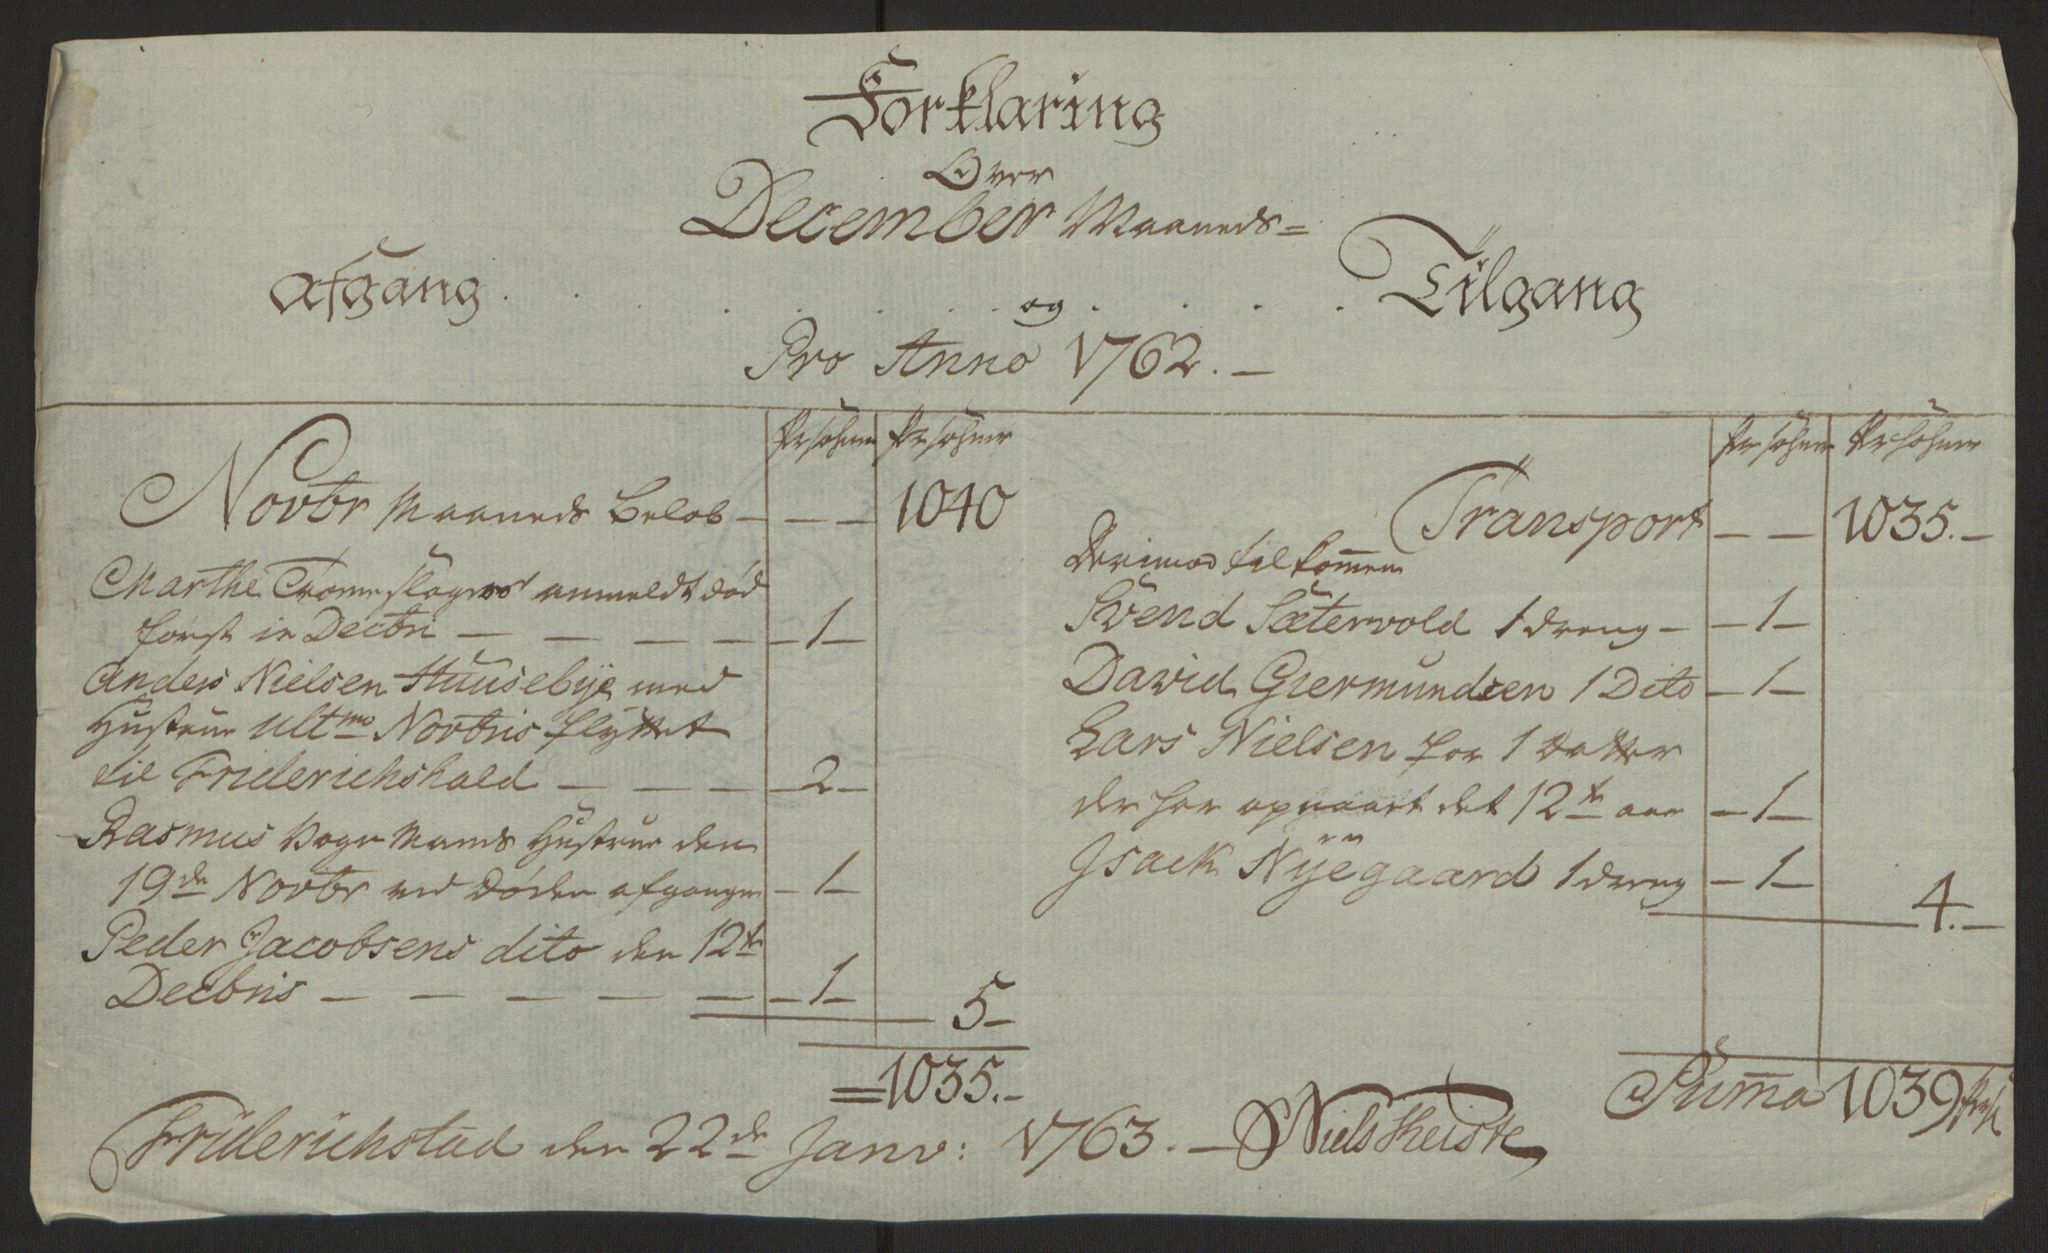 Forklaring
Over
December Maaneds=
Afgang . . . . . . og . . . . Tilgang
Pro Anno 1762. –
Persohner Persohner
Novbr Maaneds Beløb – – – 1040
Marthe Tromeslagers anmeldt død
først in Decbri – – – – – 1 –
Anders Nielsen Huusebÿe med
Hustrue ultmo Novbris flÿttet
til Friderichshald – – – – 2 –
Rasmus Vogn Mands Hustrue den
19de Novbr ved Døden afgangen – 1 –
Peder Jacobsens dito den 12te
Decbris – – – – – – 1 –
5 –
= 1035. –
Persohner Persohner
Transport – – 1035. –
Derimod tilkommen
Svend Sætervold 1 dreng – – 1 –
David Giermundsen 1 Dito – 1 –
Lars Nielsen for 1 Datter
der har opnaaet det 12te aar – 1 –
Isack Nÿegaard 1 dreng – 1 –
4. –
Sum̄a 1039 Pers
Friderichstad den 22de Janv: 1763. – Niels Heiste